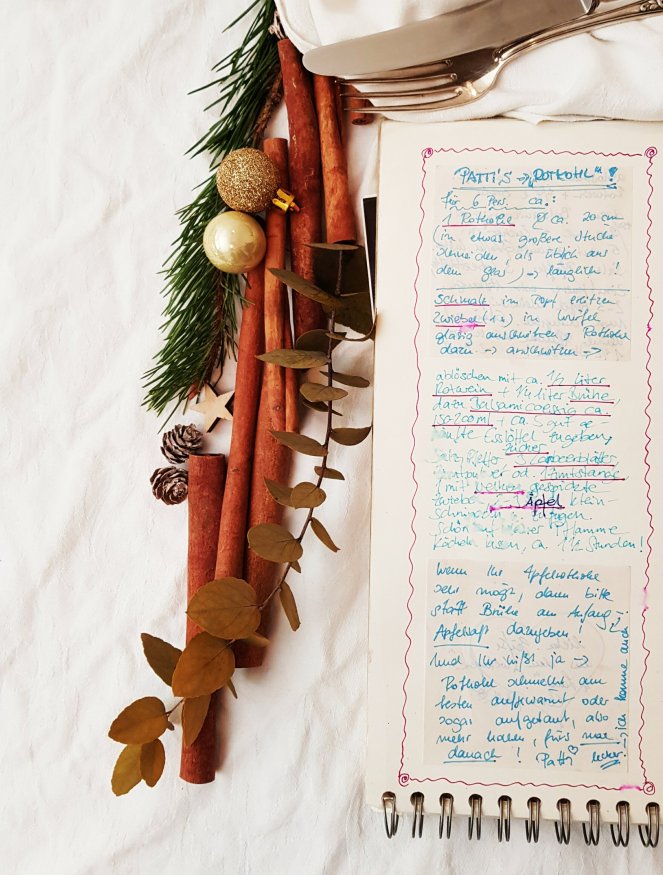 PATTI'S → „ROTKOHL“ !
für 6 Pers. ca.:
1 Rotkohl Ø ca. 20 cm
(in etwas große Stücke
schneiden, als üblich aus
dem Glas) → länglich !
Schmalz im Topf erhitzen
Zwiebel in Würfel
glasig anschwitzen, Rotkohl
dazu → anschwitzen →
ablöschen mit ca. 1/2 Liter
Rotwein + 1/4 Liter Brühe,
dazu Balsamicoessig ca.
+ ca. 5 gut ge
häufte Esslöffel zugeben,
Zucker
Salz, Pfeffer 5 Lorbeerblätter
od. 1 Zimtstange
mit Nelken gespickte
Zwiebel Äpfel klein
schneiden zufügen
Schön auf kleiner Flamme
köcheln lassen, ca. 1 1/2 Stunden!
Wenn Ihr Apfelrotkohl
sehr mögt, dann bitte
statt Brühe am Anfang
Apfelsaft dazugeben !
Und Ihr wißt ja →
Rotkohl schmeckt am
besten aufgewärmt oder
sogar aufgetaut, also
mehr haben, fürs mal
danach ! Patti
→ ich komme auch